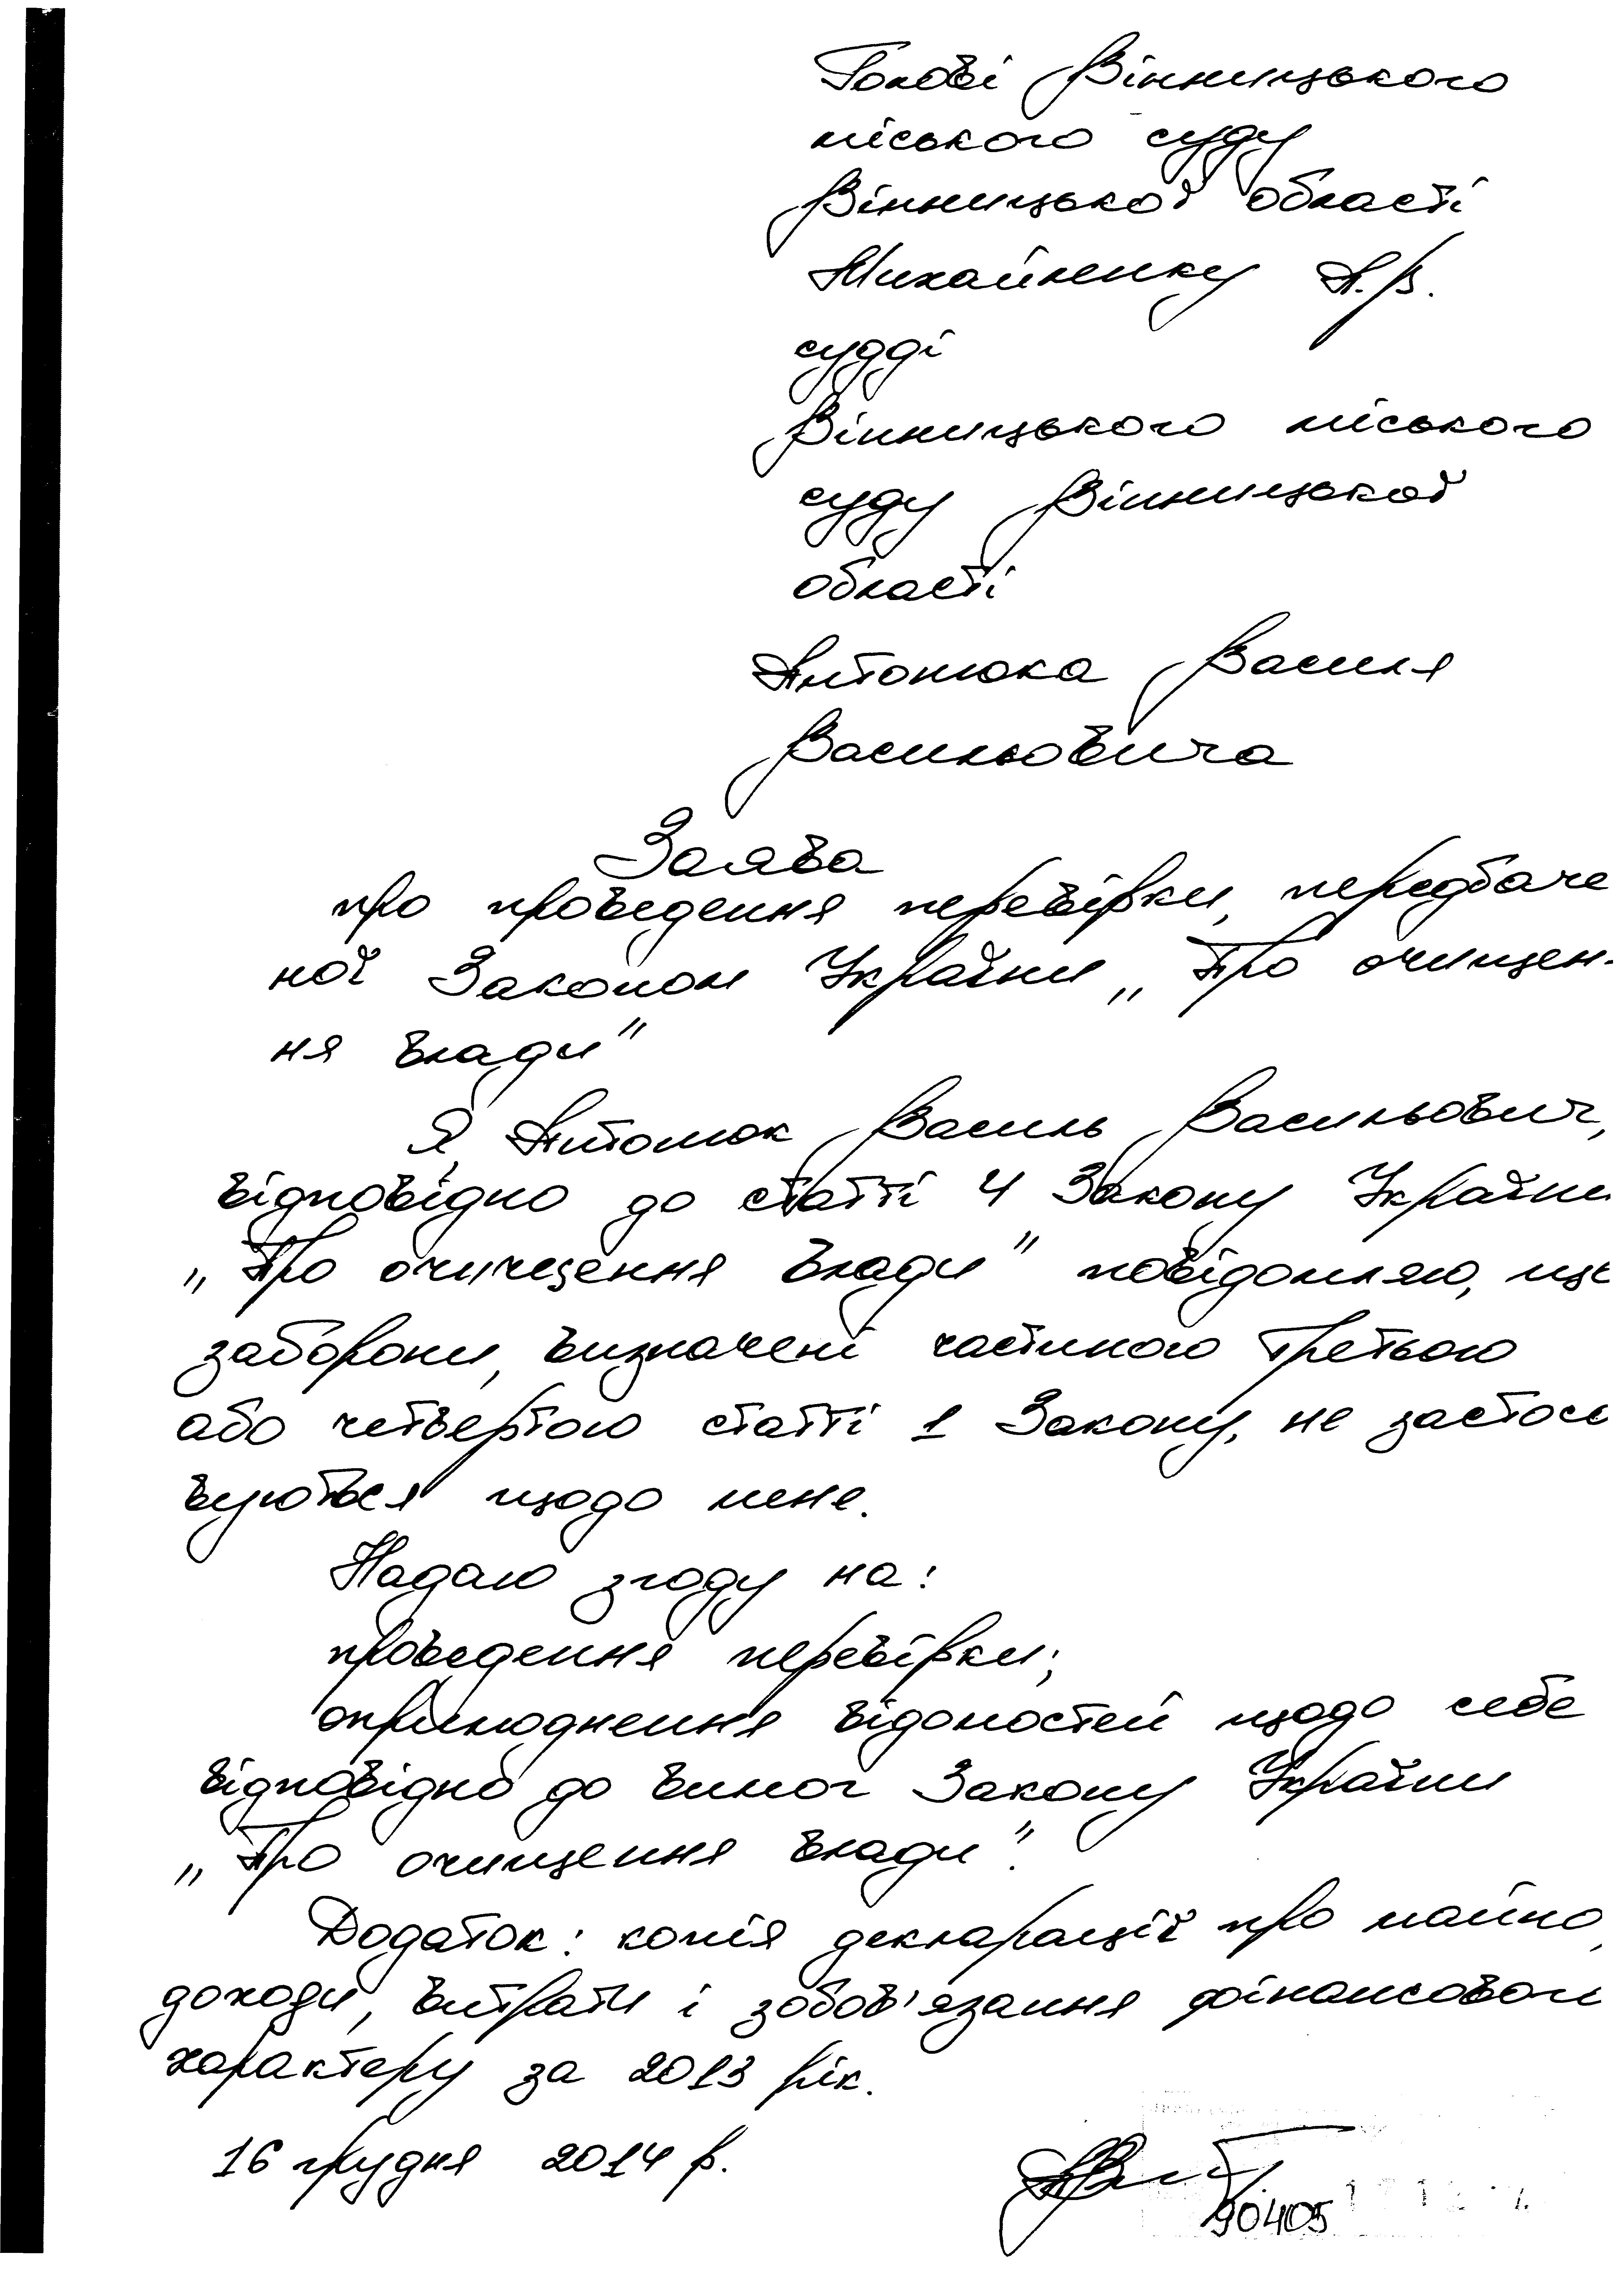 Голові Вінницького
міського суду
Вінницької області
Михайленку А.В.
судді
Вінницького міського
суду Вінницької
області
Антонюка Василя
Васильовича
Заява
про проведення перевірки, передбаче
ної Законом України „Про очищен-
ня влади"
Я, Антонюк Василь Васильович,
відповідно до статті 4 Закону України
„Про очищення влади" повідомляю, що
заборони, визначені частиною третьою
або четвертою статті 1 Закону, не застосо
вуються щодо мене.
Надаю згоду на:
проведення перевірки;
оприлюднення відомостей щодо себе
відповідно до вимог Закону України
„Про очищення влади".
Додаток: копія декларації про майно,
доходи, витрати і зобов'язання фінансового
характеру за 2013 рік.
16 грудня 2014 р.
90405